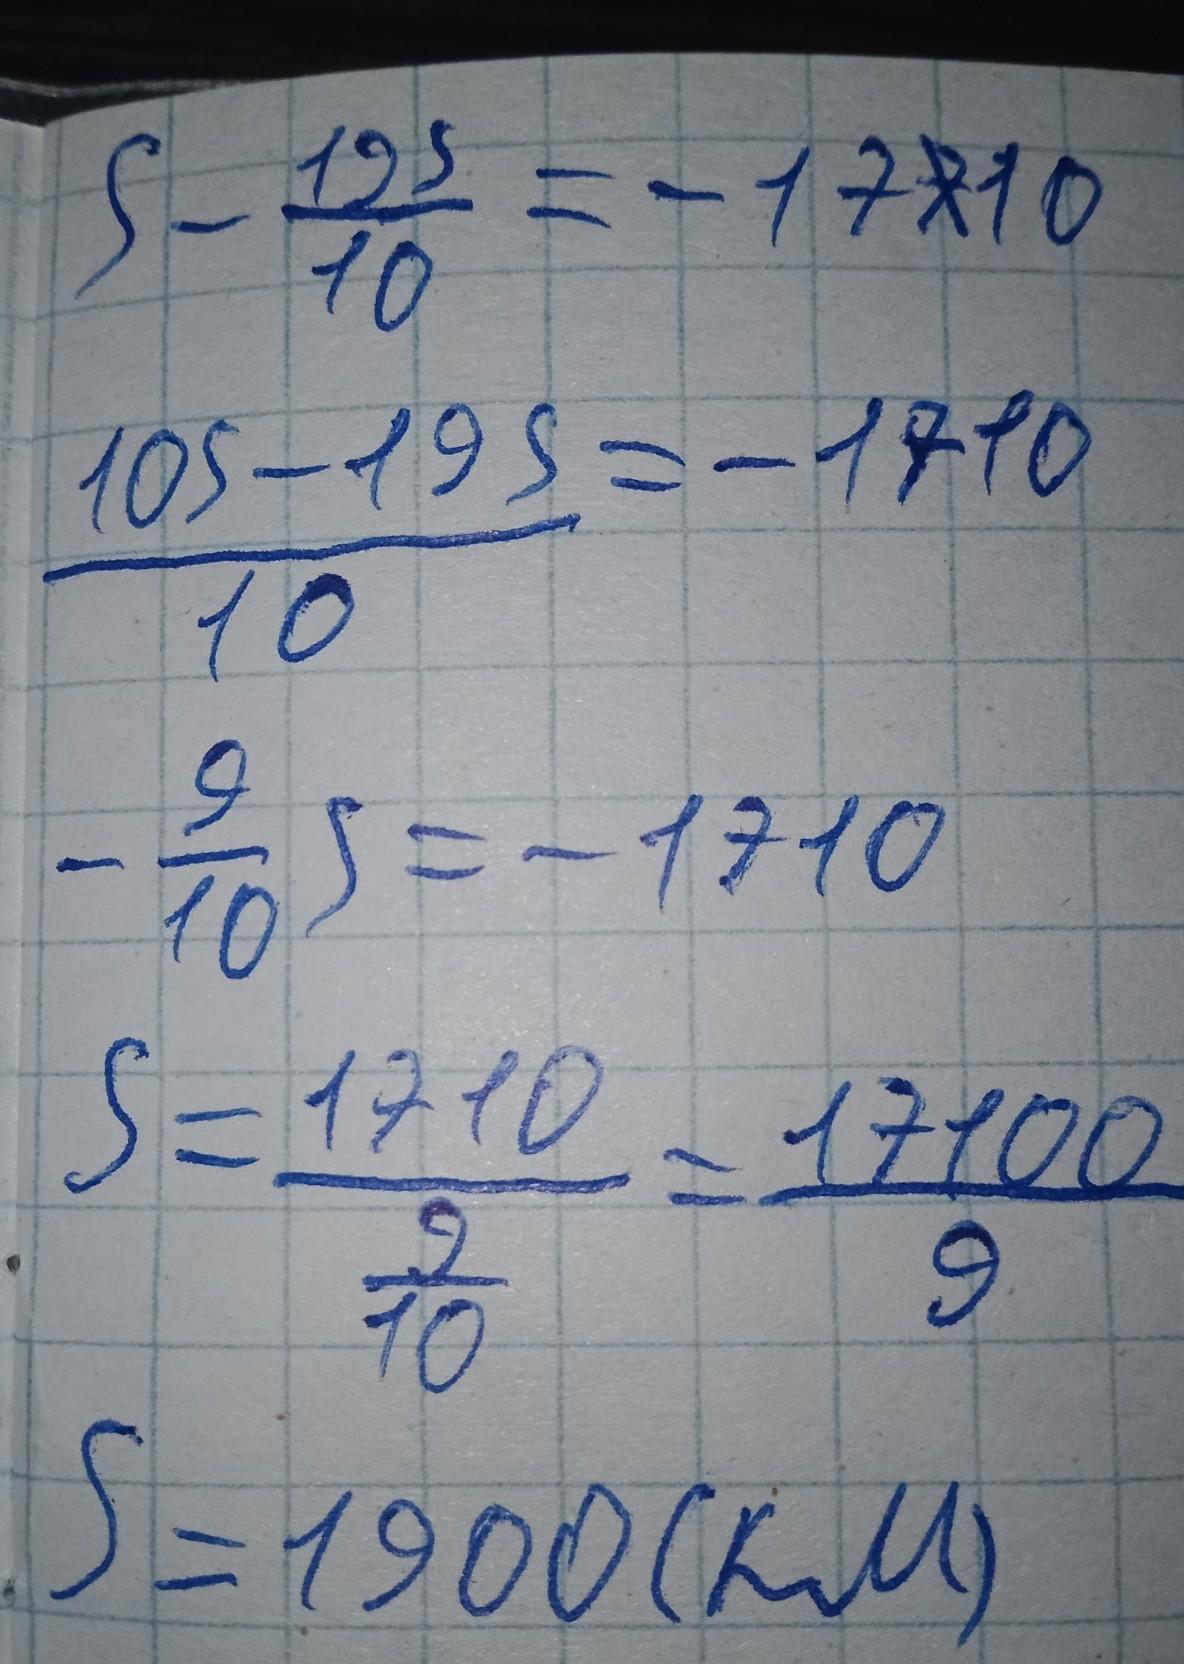 S - 19S/10 = -1710
(10S - 19S)/10 = -1710
- 9/10 S = -1710
S = 1710/(9/10) = 17100/9
S = 1900 (км)